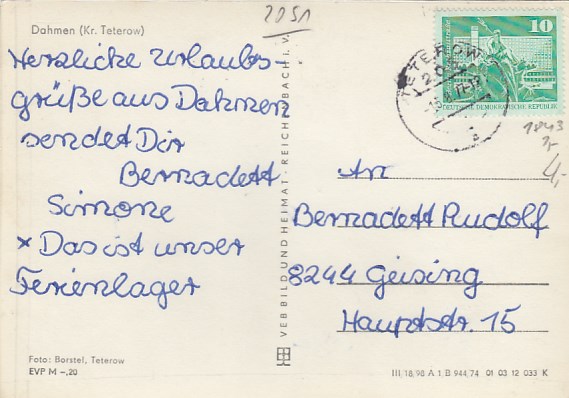 2051
Dahmen (Kr. Teterow)
Herzliche Urlaubs-
grüße aus Dahmen
sendet Dir
Bernadett
Simone
x Das ist unser
Ferienlager
Foto: Borstel, Teterow
EVP M –,20
VEB BILD UND HEIMAT, REICHENBACH i. V.
TETEROW
10
DEUTSCHE DEMOKRATISCHE REPUBLIK
1843
4,-
An
Bernadett Rudolf
8244 Geising
Hauptstr. 15
III 18, 98 A 1, B 944, 74 01 03 12 033 K